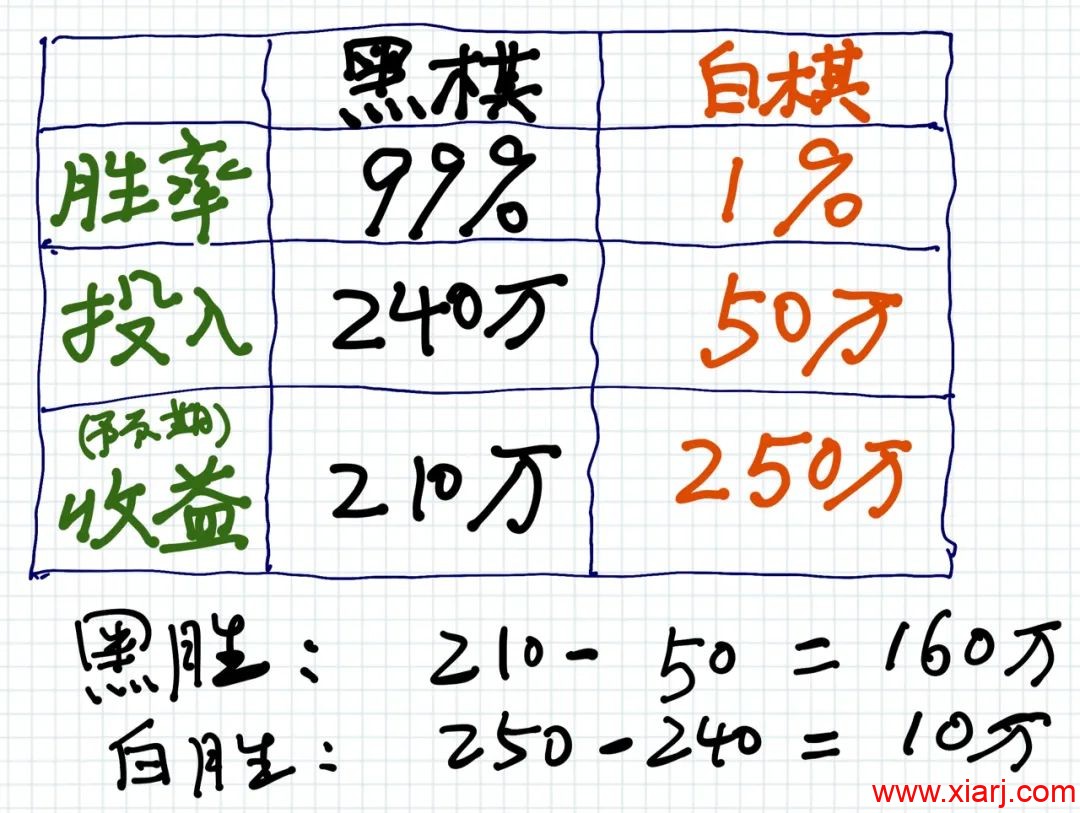 黑棋 白棋
胜率 99% 1%
投入 240万 50万
(预期)
收益 210万 250万
黑胜: 210-50=160万
白胜: 250-240=10万
www.xiarj.com